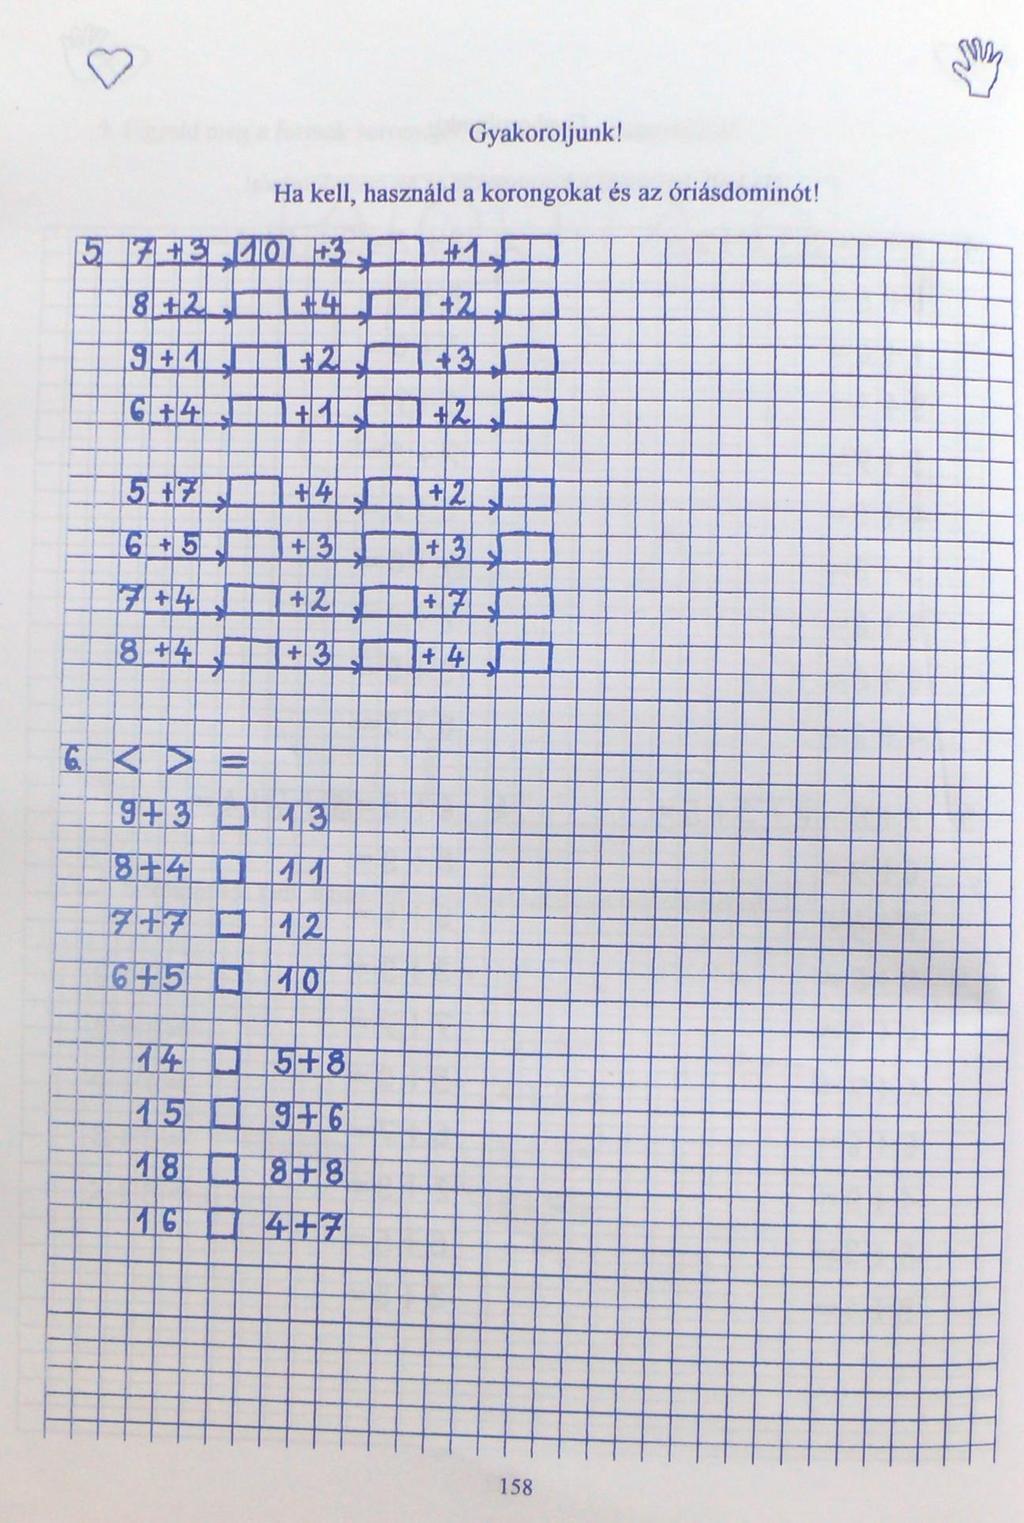 Gyakoroljunk!
Ha kell, használd a korongokat és az óriásdominót!
5. 7 +3 10 +3 +1
8 +2 +4 +2
9 +1 +2 +3
6 +4 +1 +2
5 +7 +4 +2
6 +5 +3 +3
7 +4 +2 +7
8 +4 +3 +4
6. < > =
9+3 □ 13
8+4 □ 11
7+7 □ 12
6+5 □ 10
14 □ 5+8
15 □ 9+6
18 □ 8+8
16 □ 4+7
158